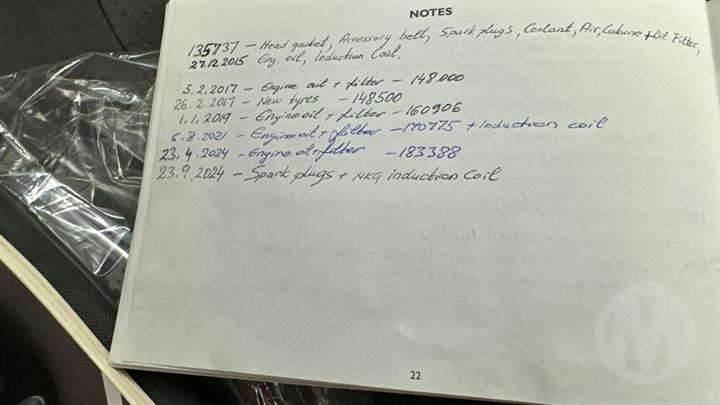 NOTES
135737 - Head gasket, Accessory belt, Spark plugs, Coolant, Air, Cabine + Oil Filter,
27.12.2015 Eng. oil, Induction Coil.
5.2.2017 - Engine oil + filter - 148.000
26.2.2017 - New tyres - 148500
1.1.2019 - Engine oil + filter - 160906
6.8.2021 - Engine oil + filter - 170775 + Induction coil
23.4.2024 - Engine oil + filter - 183388
23.9.2024 - Spark plugs + NKG induction Coil
22
M